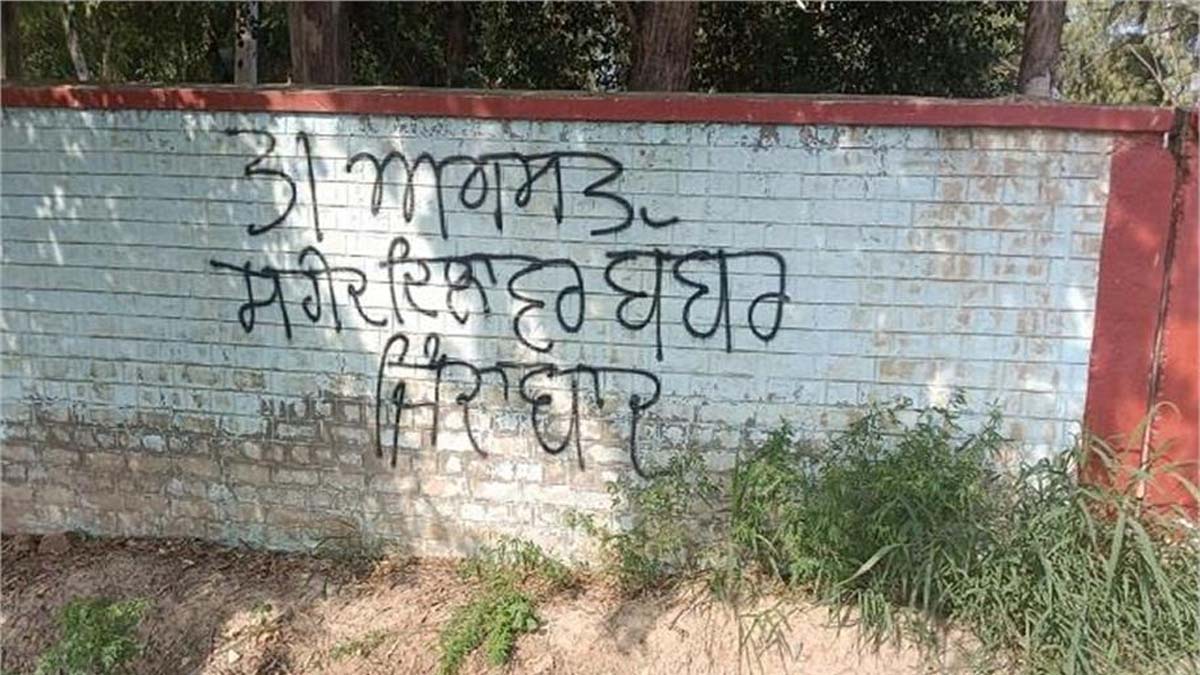 31 ਅਗਸਤ
ਸਹੀਦ ਦਿਲਾਵਰ ਬਬਰ
ਜਿੰਦਾਬਾਦ